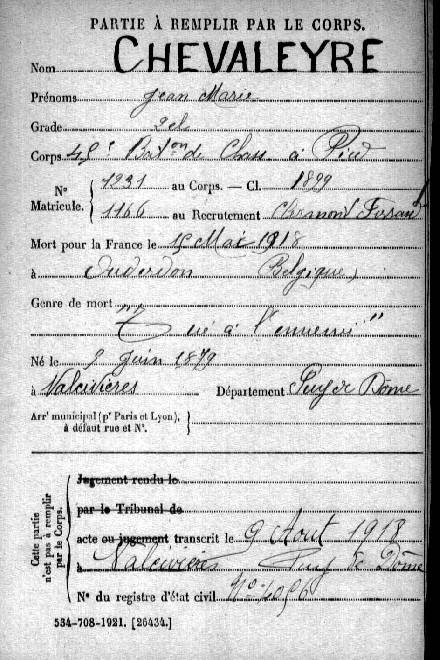 PARTIE À REMPLIR PAR LE CORPS.
Nom CHEVALEYRE
Prénoms Jean Marie
Grade 2 cl
Corps 45e Batон de Chass à Pied
N° Matricule. { 1231 au Corps. — Cl. 1899
1166 au Recrutement Clermont Ferrand
Mort pour la France le 15 Mai 1918
à Ouderdon Belgique
Genre de mort
"Tué à l'ennemi"
Né le 5 Juin 1879
à Valcivières Département Puy de Dôme
Arr' municipal (p' Paris et Lyon),
à défaut rue et N°.
Cette partie n'est pas à remplir par le Corps.
Jugement rendu le
par le Tribunal de
acte ou jugement transcrit le 9 Aout 1918
à Valcivières Puy de Dôme
N° du registre d'état civil
534-708-1921. [26434.]